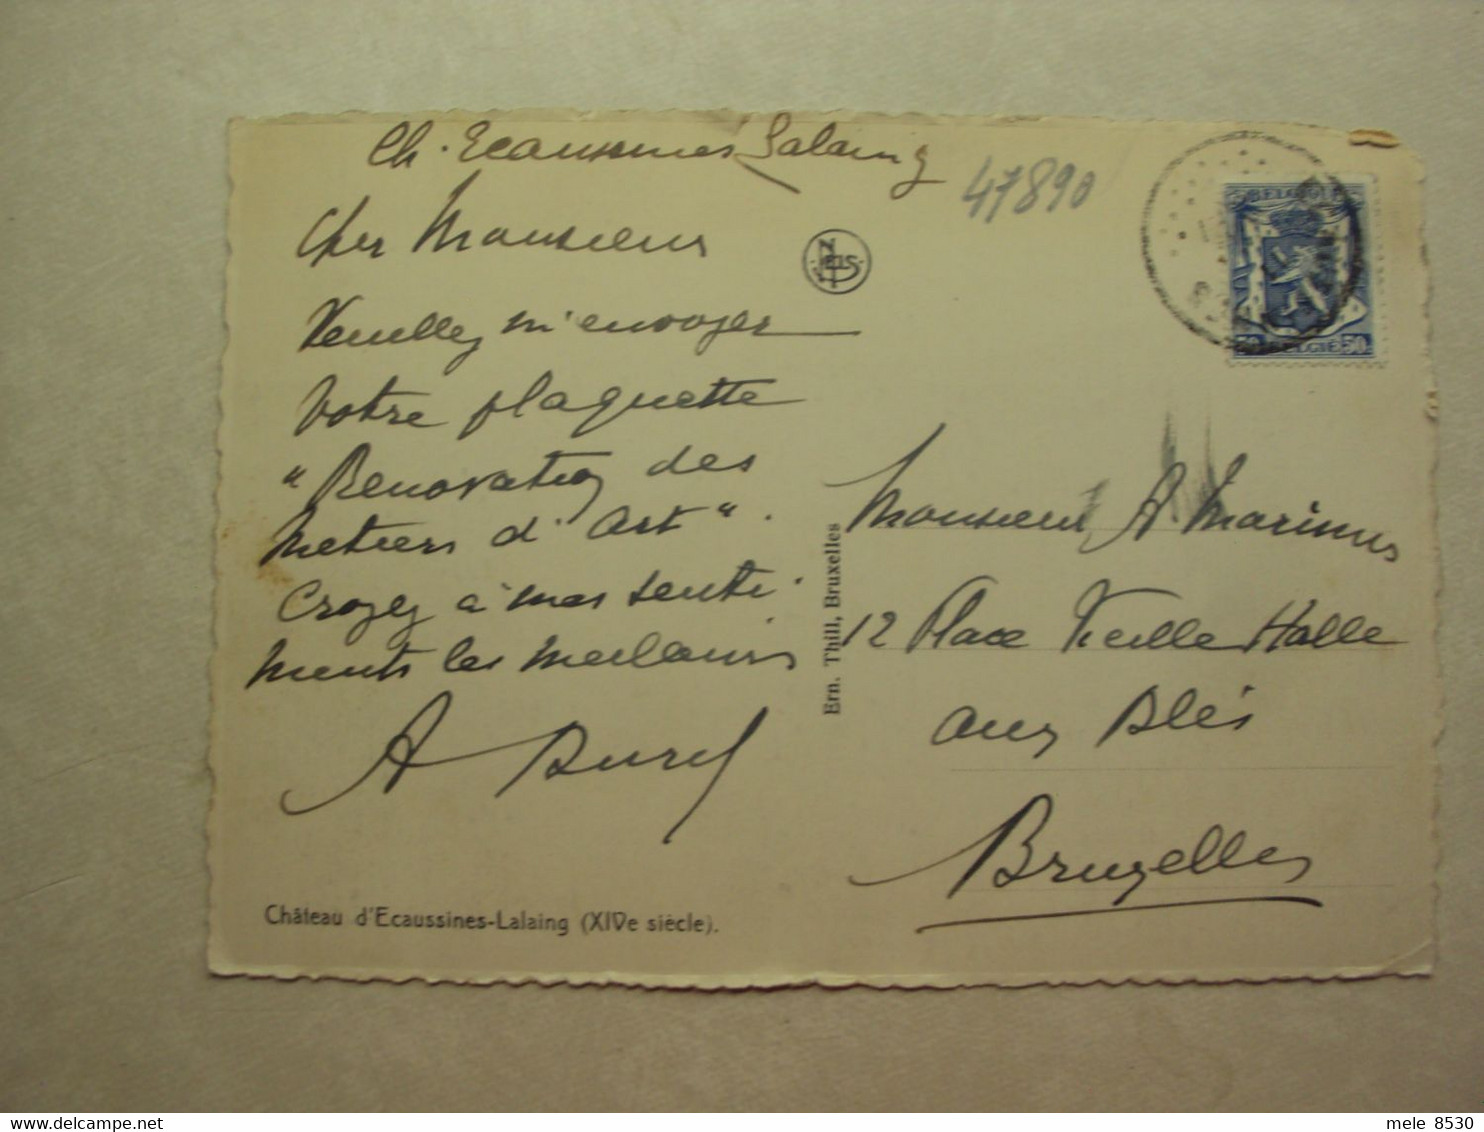 Ch. Ecaussines Lalaing
47890
Cher Monsieur
Veuillez m'envoyer
Votre plaquette
"Renovation des
Metiers d'Art".
Croyez à mes senti-
ments les meilleurs
A
Château d'Ecaussines-Lalaing (XIVe siècle).
Nels
Ern. Thill, Bruxelles
BELGIQUE
50 BELGIË 50
Monsieur A Marinus
12 Place Vieille Halle
aux Blés
Bruxelles
mele 8530